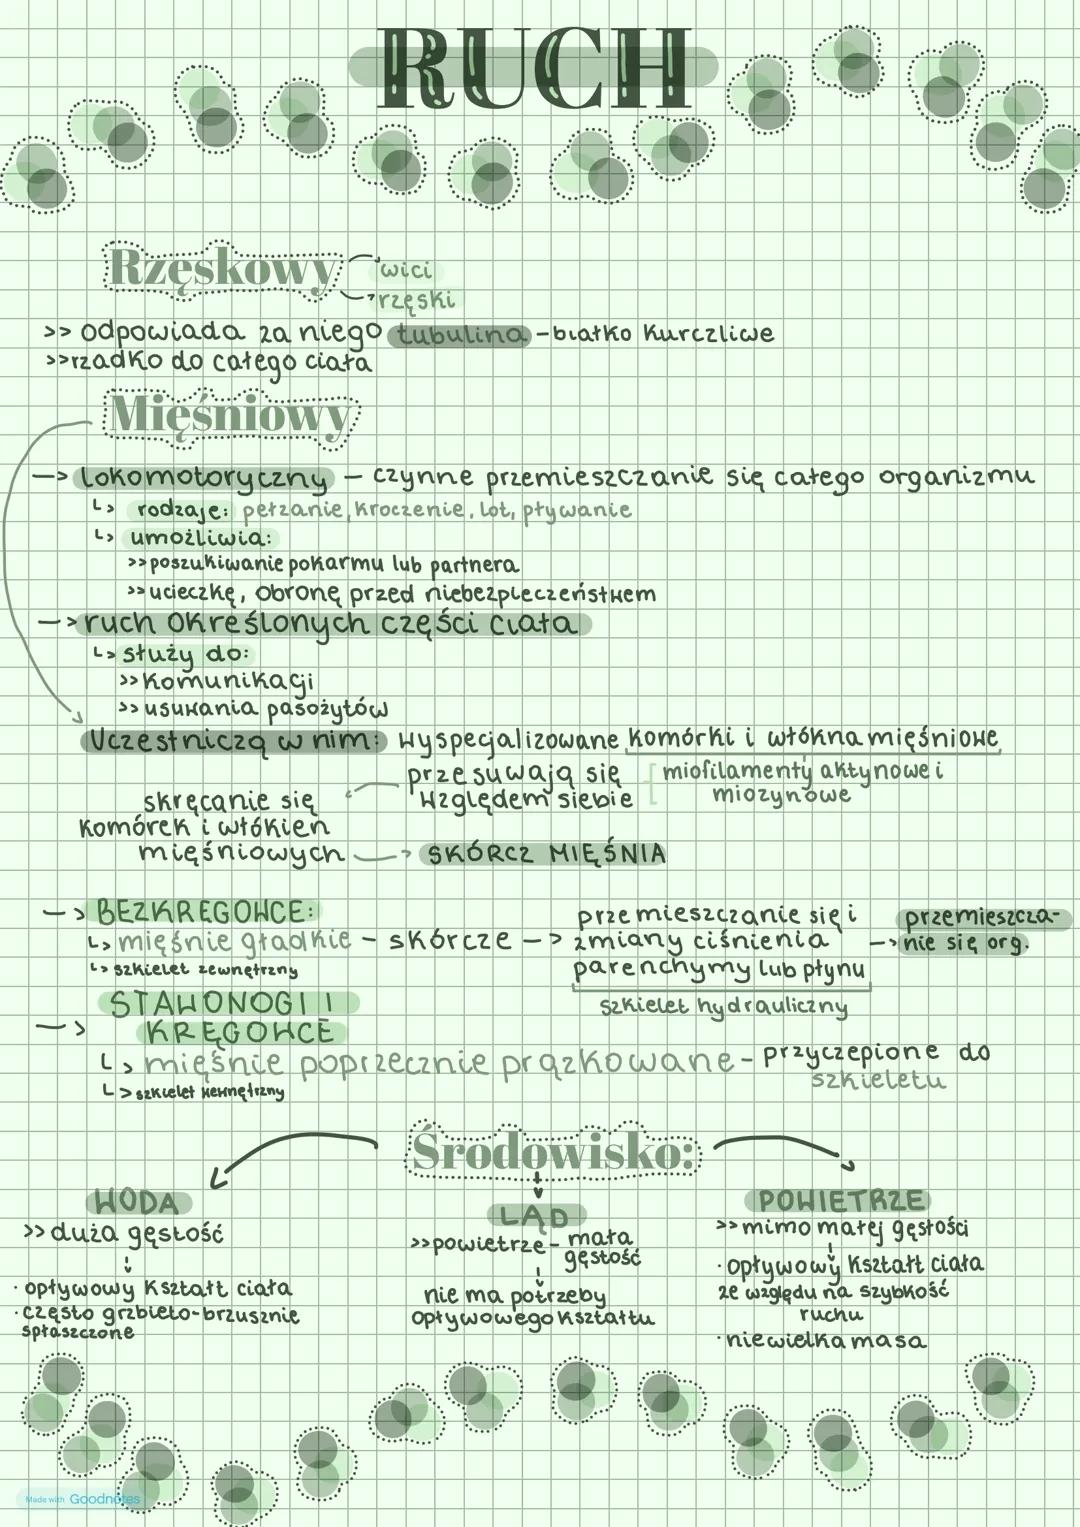 RUCH
Rzęskowy
wici
rzęski
>> odpowiada za niego tubulina - białko kurczliwe
>> rzadko do całego ciała
Mięśniowy
—> lokomotoryczny — czynne przemieszczanie się całego organizmu
↳ rodzaje: pełzanie, kroczenie, lot, pływanie
↳ umożliwia:
>> poszukiwanie pokarmu lub partnera
>> ucieczkę, obronę przed niebezpieczeństwem
—> ruch określonych części ciała
↳ służy do:
>> komunikacji
>> usuwania pasożytów
Uczestniczą w nim: wyspecjalizowane komórki i włókna mięśniowe
przesuwają się
względem siebie
miofilamenty aktynowe i
miozynowe
skręcanie się
komórek i włókien
mięśniowych —> SKÓRCZ MIĘŚNIA
—> BEZKRĘGOWCE:
↳ mięśnie gładkie - skórcze —> przemieszczanie się i
zmiany ciśnienia
parenchymy lub płynu
szkielet hydrauliczny
—> przemieszcza-
nie się org.
↳ szkielet zewnętrzny
—> STAWONOGI I
KRĘGOWCE
↳ mięśnie poprzecznie prążkowane - przyczepione do
szkieletu
↳ szkielet wewnętrzny
Środowisko:
WODA
>> duża gęstość
· opływowy kształt ciała
· często grzbieto-brzusznie
spłaszczone
LĄD
>> powietrze - mała
gęstość
nie ma potrzeby
opływowego kształtu
POWIETRZE
>> mimo małej gęstości
· opływowy kształt ciała
ze względu na szybkość
ruchu
· niewielka masa
Made with Goodnotes